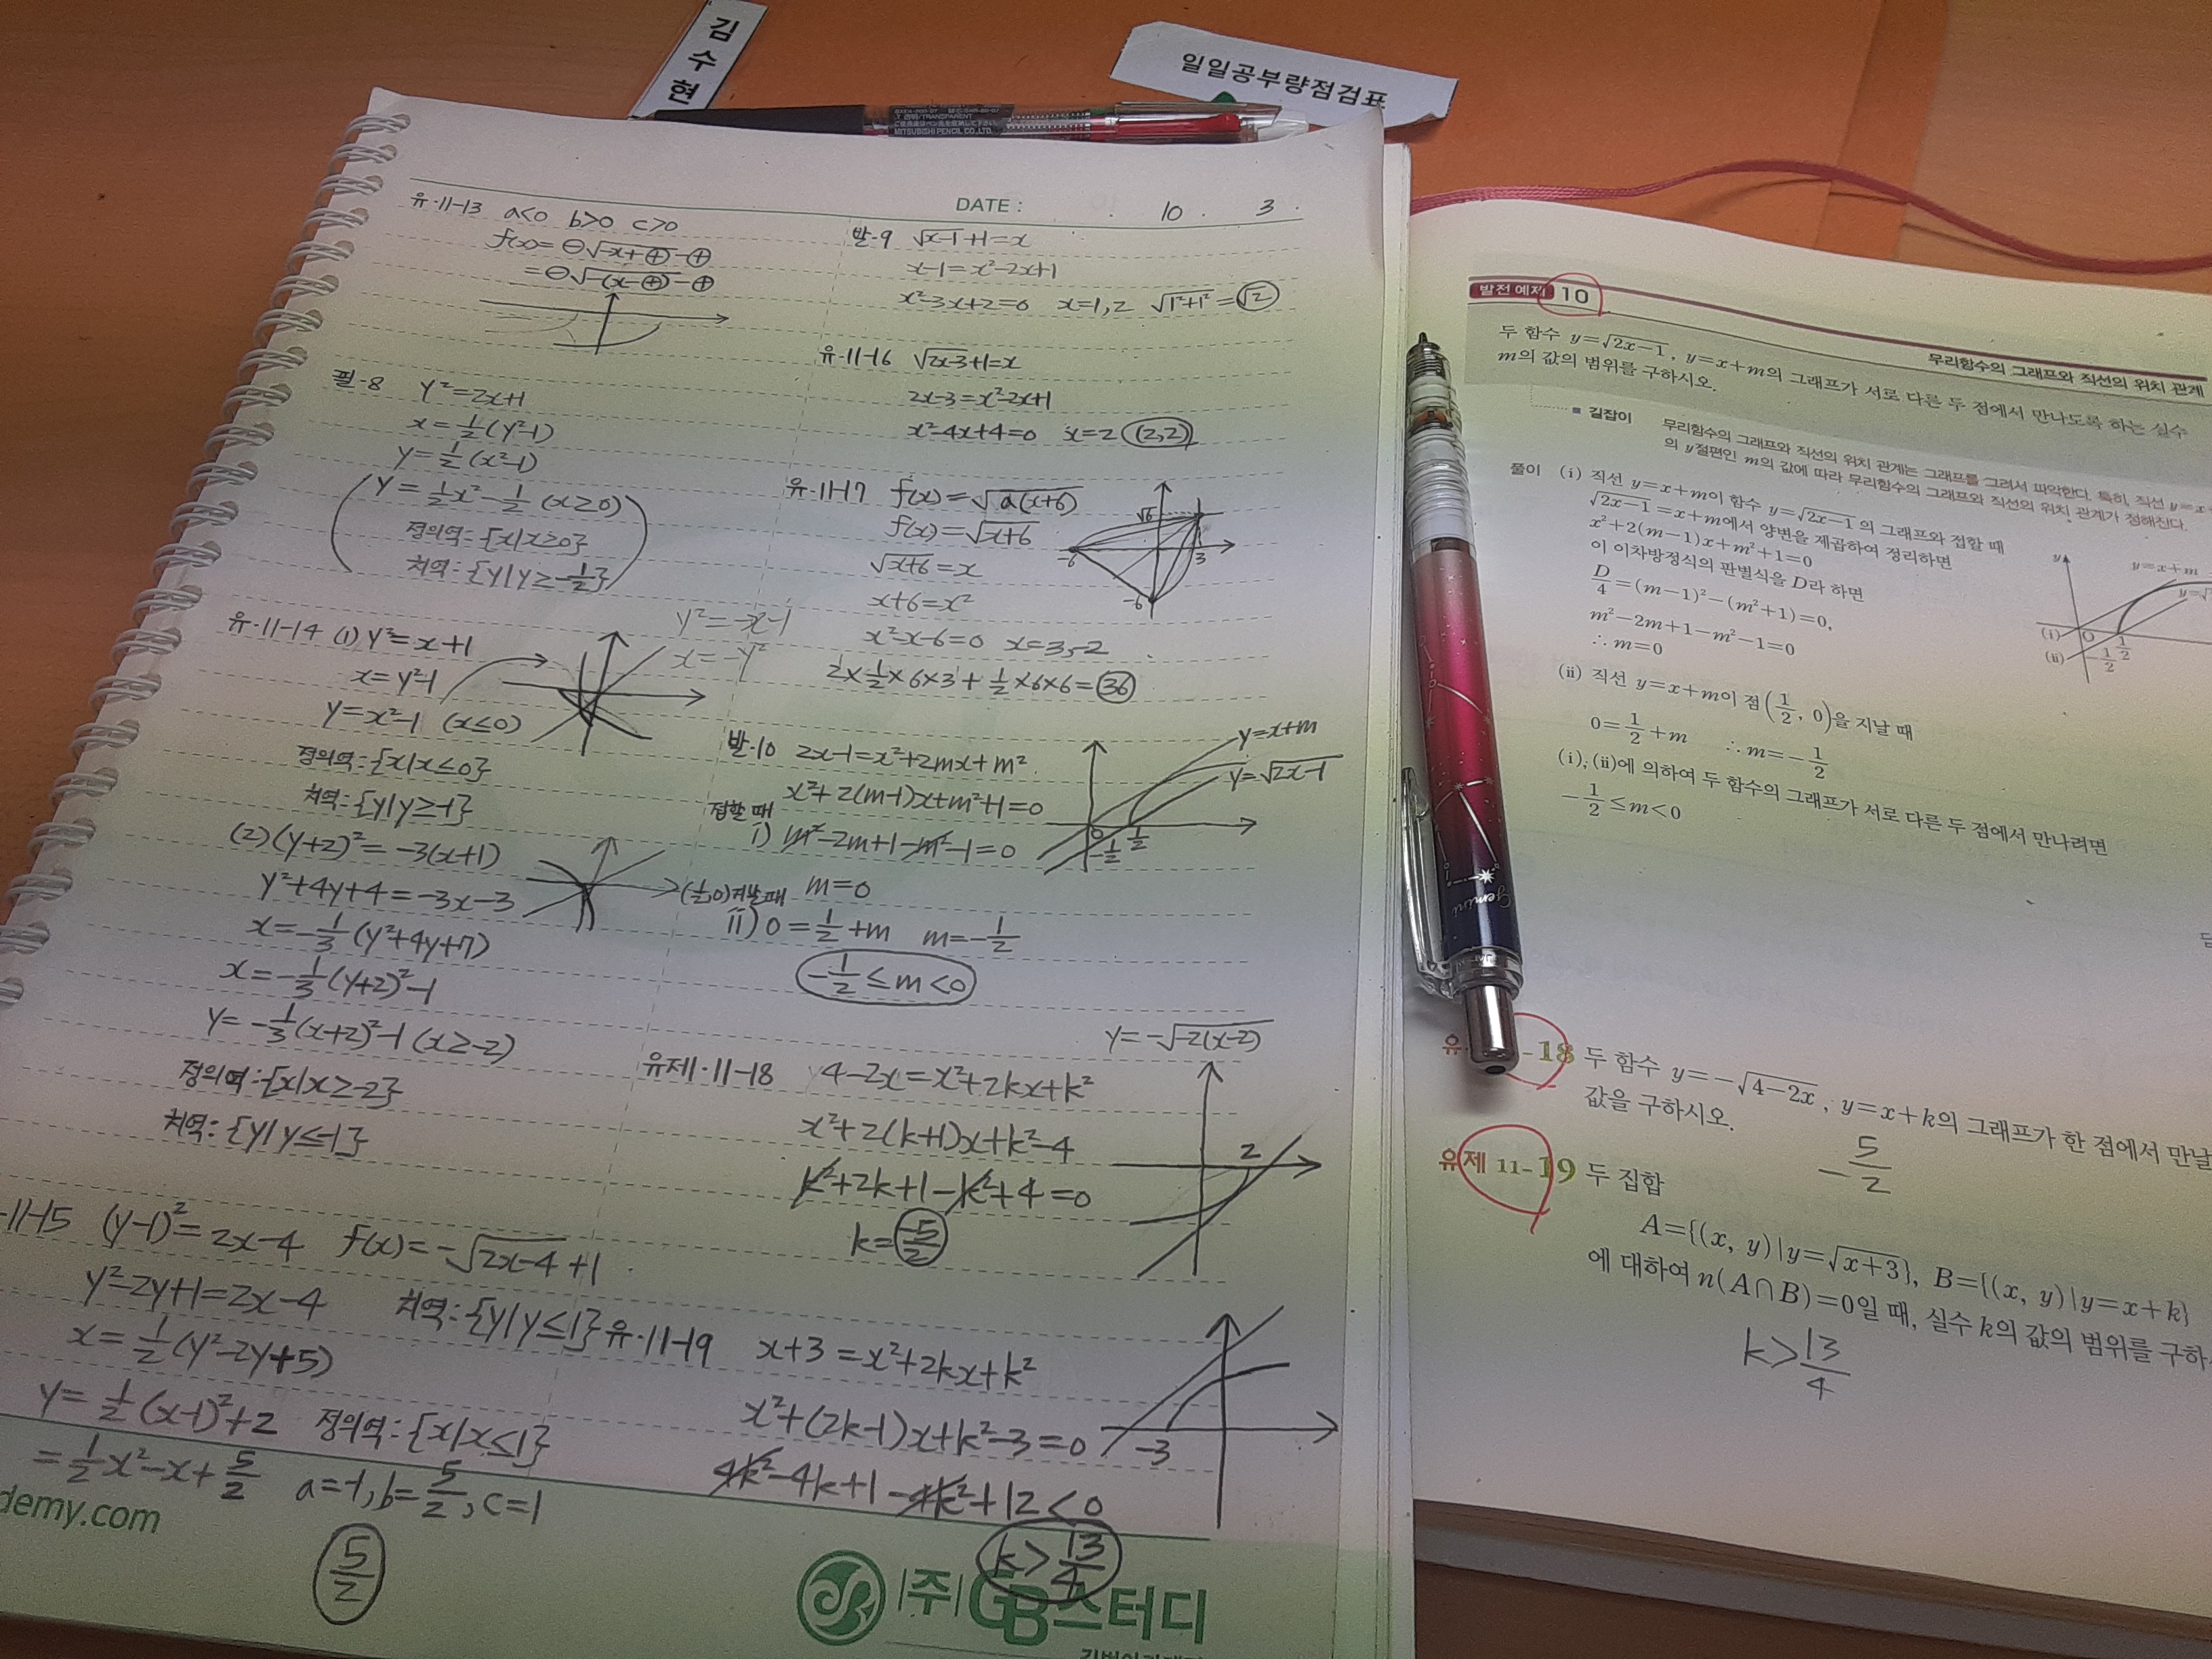 김수현
일일공부량점검표
MITSUBISHI PENCIL CO., LTD.
DATE : . 10 . 3 .
유·11-13 a<0 b>0 c>0
f(x)=⊖√-x+⊕ -⊕
=⊖√-(x-⊕) -⊕
필·8 y²=2x+1
x=½(y²-1)
y=½(x²-1)
(y=½x²-½ (x≥0)
정의역:{x|x≥0}
치역:{y|y≥-½})
유·11-14 (1) y²=x+1
x=y²-1
y=x²-1 (x≤0)
y²=-x-1
x=-y²
정의역:{x|x≤0}
치역:{y|y≥-1}
(2) (y+2)²=-3(x+1)
y²+4y+4=-3x-3
x=-⅓(y²+4y+7)
x=-⅓(y+2)²-1
y=-⅓(x+2)²-1 (x≥-2)
정의역:{x|x≥-2}
치역:{y|y≤-1}
·11-15 (y-1)²=2x-4 f(x)=-√2x-4+1
y²-2y+1=2x-4 치역:{y|y≤1}
x=½(y²-2y+5)
y=½(x-1)²+2 정의역:{x|x≤1}
=½x²-x+5/2 a=-1, b=5/2, c=1
5/2
발·9 √x-1+1=x
x-1=x²-2x+1
x²-3x+2=0 x=1,2 √1²+1²=√2
유·11-16 √2x-3+1=x
2x-3=x²-2x+1
x²-4x+4=0 x=2 (2,2)
유·11-17 f(x)=√a(x+6)
f(x)=√x+6
√x+6=x
x+6=x²
x²-x-6=0 x=3,-2
√6
-6 3
-6
2×½×6×3+½×6×6=36
발·10 2x-1=x²+2mx+m²
x²+2(m-1)x+m²+1=0
접할 때
i) m²-2m+1-m²-1=0
m=0
(½,0)지날 때
ii) 0=½+m m=-½
-½≤m<0
y=x+m
y=√2x-1
0 ½
-½
유제·11-18 4-2x=x²+2kx+k²
x²+2(k+1)x+k²-4
k²+2k+1-k²+4=0
k=-5/2
y=-√-2(x-2)
2
유·11-19 x+3=x²+2kx+k²
x²+(2k-1)x+k²-3=0
4k²-4k+1-4k²+12<0
k>13/4
-3
demy.com
(주)GB스터디
발전 예제 10
무리함수의 그래프와 직선의 위치 관계
두 함수 y=√2x-1, y=x+m의 그래프가 서로 다른 두 점에서 만나도록 하는 실수
m의 값의 범위를 구하시오.
■ 길잡이 무리함수의 그래프와 직선의 위치 관계는 그래프를 그려서 파악한다. 특히, 직선 y=x+
의 y절편인 m의 값에 따라 무리함수의 그래프와 직선의 위치 관계가 정해진다.
풀이 (i) 직선 y=x+m이 함수 y=√2x-1의 그래프와 접할 때
√2x-1=x+m에서 양변을 제곱하여 정리하면
x²+2(m-1)x+m²+1=0
이 이차방정식의 판별식을 D라 하면
D/4=(m-1)²-(m²+1)=0,
m²-2m+1-m²-1=0
∴ m=0
y y=x+m
y=√
(i) O ½
(ii) -½
(ii) 직선 y=x+m이 점(½, 0)을 지날 때
0=½+m ∴ m=-½
(i), (ii)에 의하여 두 함수의 그래프가 서로 다른 두 점에서 만나려면
-½≤m<0
Gemini
유 -18 두 함수 y=-√4-2x, y=x+k의 그래프가 한 점에서 만날
값을 구하시오.
-5/2
유제 11-19 두 집합
A={(x, y)|y=√x+3}, B={(x, y)|y=x+k}
에 대하여 n(A∩B)=0일 때, 실수 k의 값의 범위를 구하
k>13/4